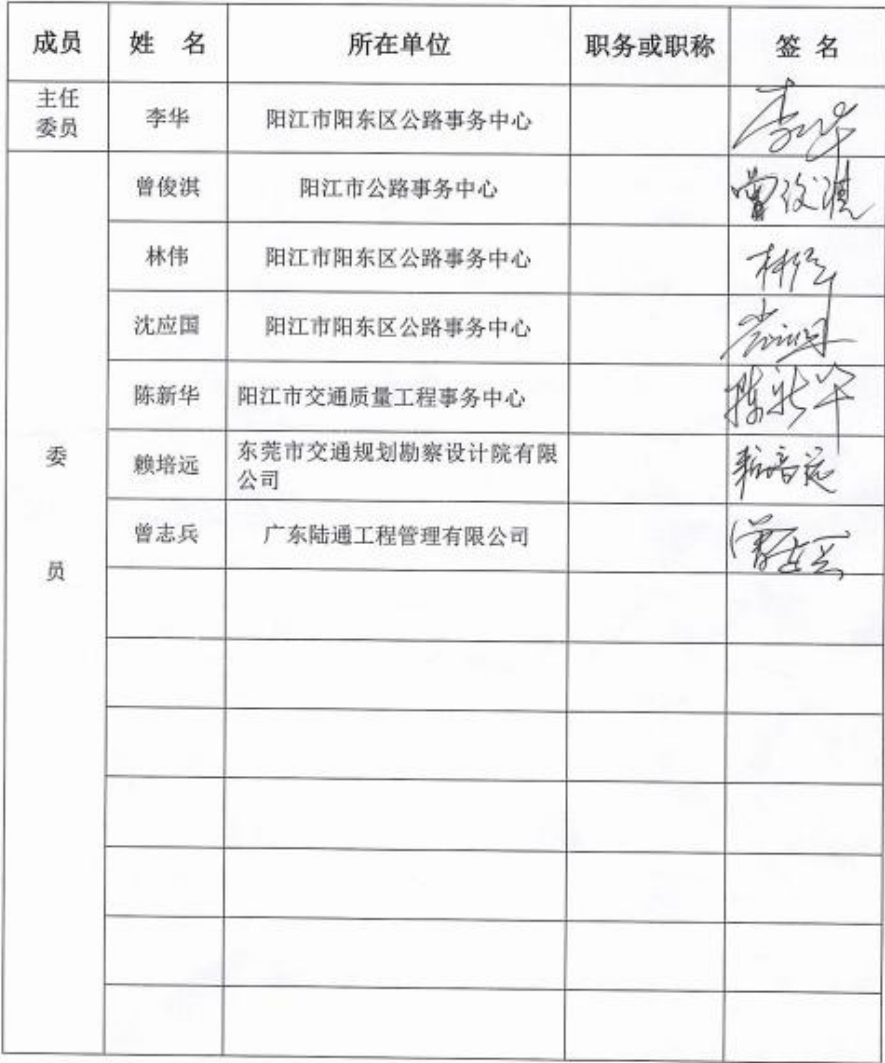 成员 姓 名 所在单位 职务或职称 签 名
主任
委员 李华 阳江市阳东区公路事务中心 李华
曾俊淇 阳江市公路事务中心 曾俊淇
林伟 阳江市阳东区公路事务中心 林伟
沈应国 阳江市阳东区公路事务中心
陈新华 阳江市交通质量工程事务中心 陈新华
委 赖培远 东莞市交通规划勘察设计院有限
公司 赖培远
曾志兵 广东陆通工程管理有限公司 曾志兵
员